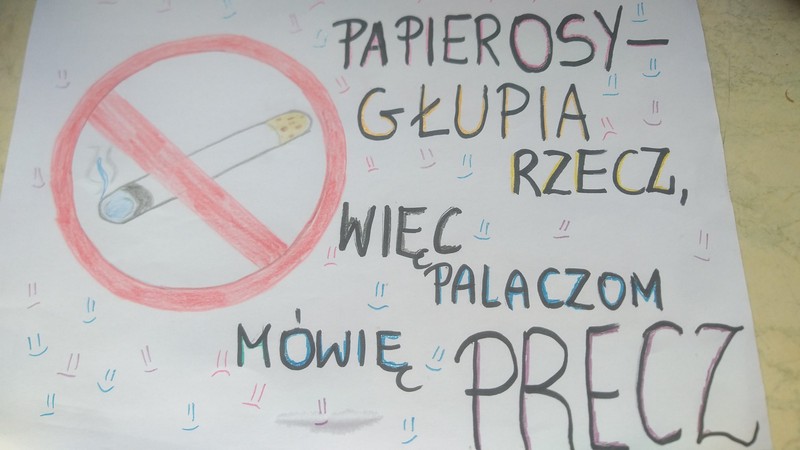 PAPIEROSY-
GŁUPIA
RZECZ,
WIĘC
PALACZOM
MÓWIĘ
PRECZ